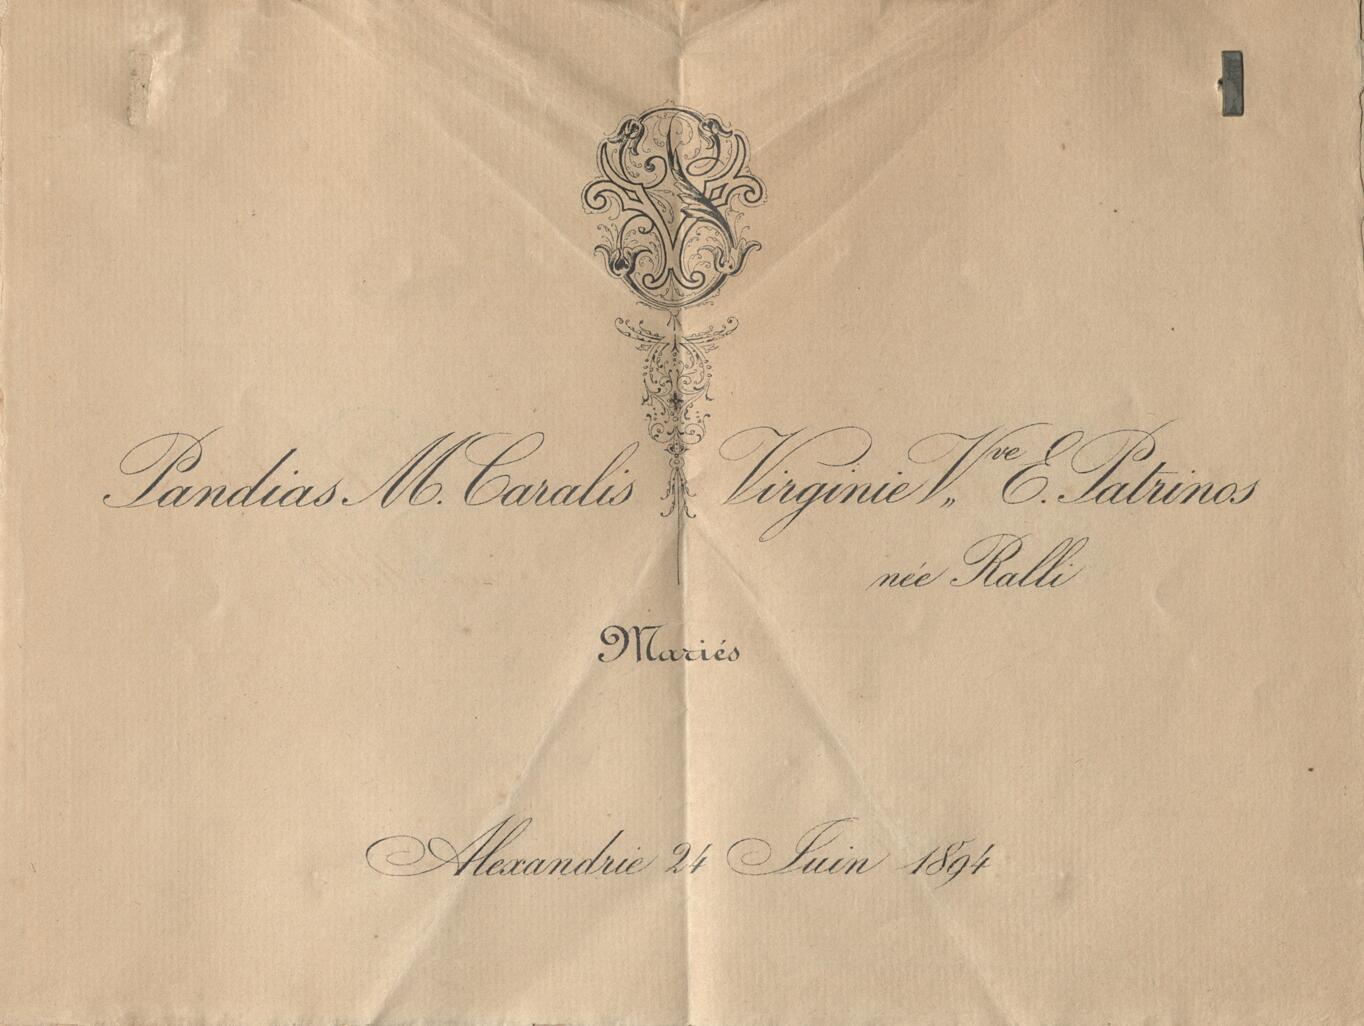 Pandias M. Caralis Virginie V„ve E. Patrinos
née Ralli
Mariés
Alexandrie 24 Juin 1894